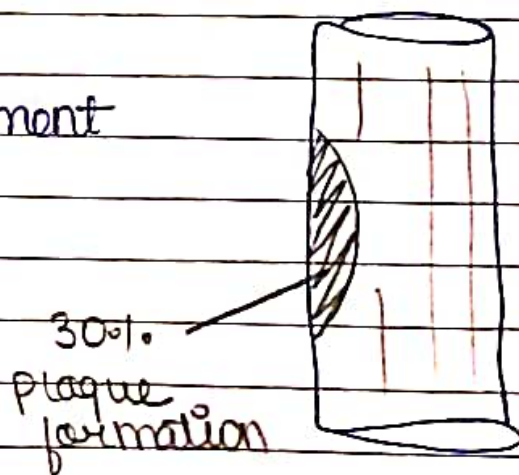 ment
30%.
plaque
formation